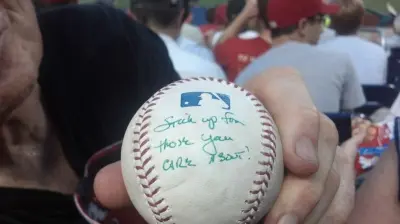 Stick up for
those you
care about!